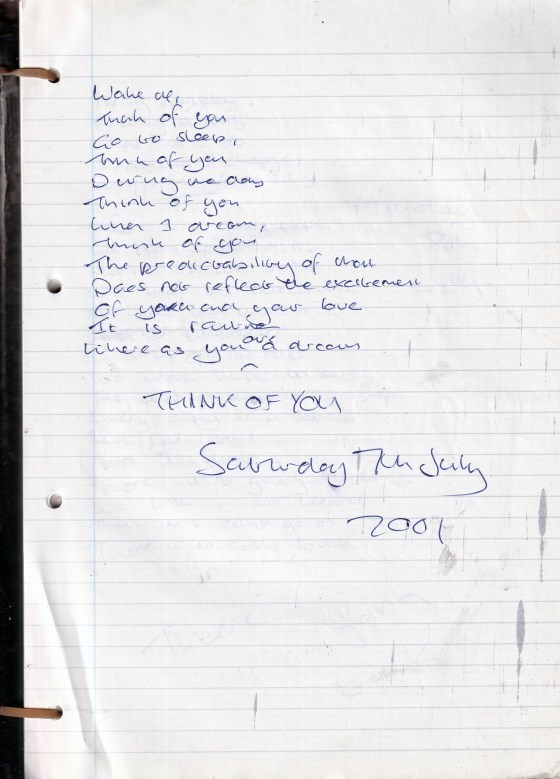 Wake up,
Think of you
Go to sleep,
Think of you
During the day
Think of you
When I dream,
Think of you
The predictability of that
Does not reflect the excitement
Of you and your love
It is routine
Where as you are a dream
THINK OF YOU
Saturday 7th July
2001